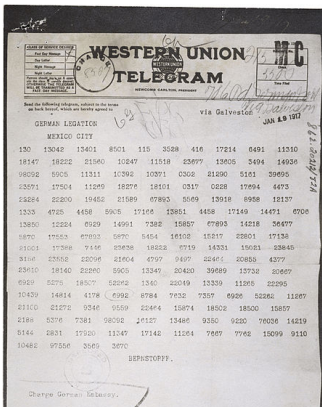 CLASS OF SERVICE DESIRED
Fast Day Message
Day Letter
Night Message
Night Letter
CHARGE
WESTERN UNION
WESTERN UNION
TELEGRAM
NEWCOMB CARLTON, PRESIDENT
Send the following telegram, subject to the terms
on back hereof, which are hereby agreed to
via Galveston
JAN 19 1917
GERMAN LEGATION
MEXICO CITY
130 13042 13401 8501 115 3528 416 17214 6491 11310
18147 18222 21560 10247 11518 23677 13605 3494 14936
98092 5905 11311 10392 10371 0302 21290 5161 39695
23571 17504 11269 18276 18101 0317 0228 17694 4473
22284 22200 19452 21589 67893 5569 13918 8958 12137
1333 4725 4458 5905 17166 13851 4458 17149 14471 6706
13850 12224 6929 14991 7382 15857 67893 14218 36477
5870 17553 67893 5870 5454 16102 15217 22801 17138
21001 17388 7446 23638 18222 6719 14331 15021 23845
3156 23552 22096 21604 4797 9497 22464 20855 4377
23610 18140 22260 5905 13347 20420 39689 13732 20667
6929 5275 18507 52262 1340 22049 13339 11265 22295
10439 14814 4178 6992 8784 7632 7357 6926 52262 11267
21100 21272 9346 9559 22464 15874 18502 18500 15857
2188 5376 7381 98092 16127 13486 9350 9220 76036 14219
5144 2831 17920 11347 17142 11264 7667 7762 15099 9110
10482 97556 3569 3670
BERNSTORFF.
Charge German Embassy.